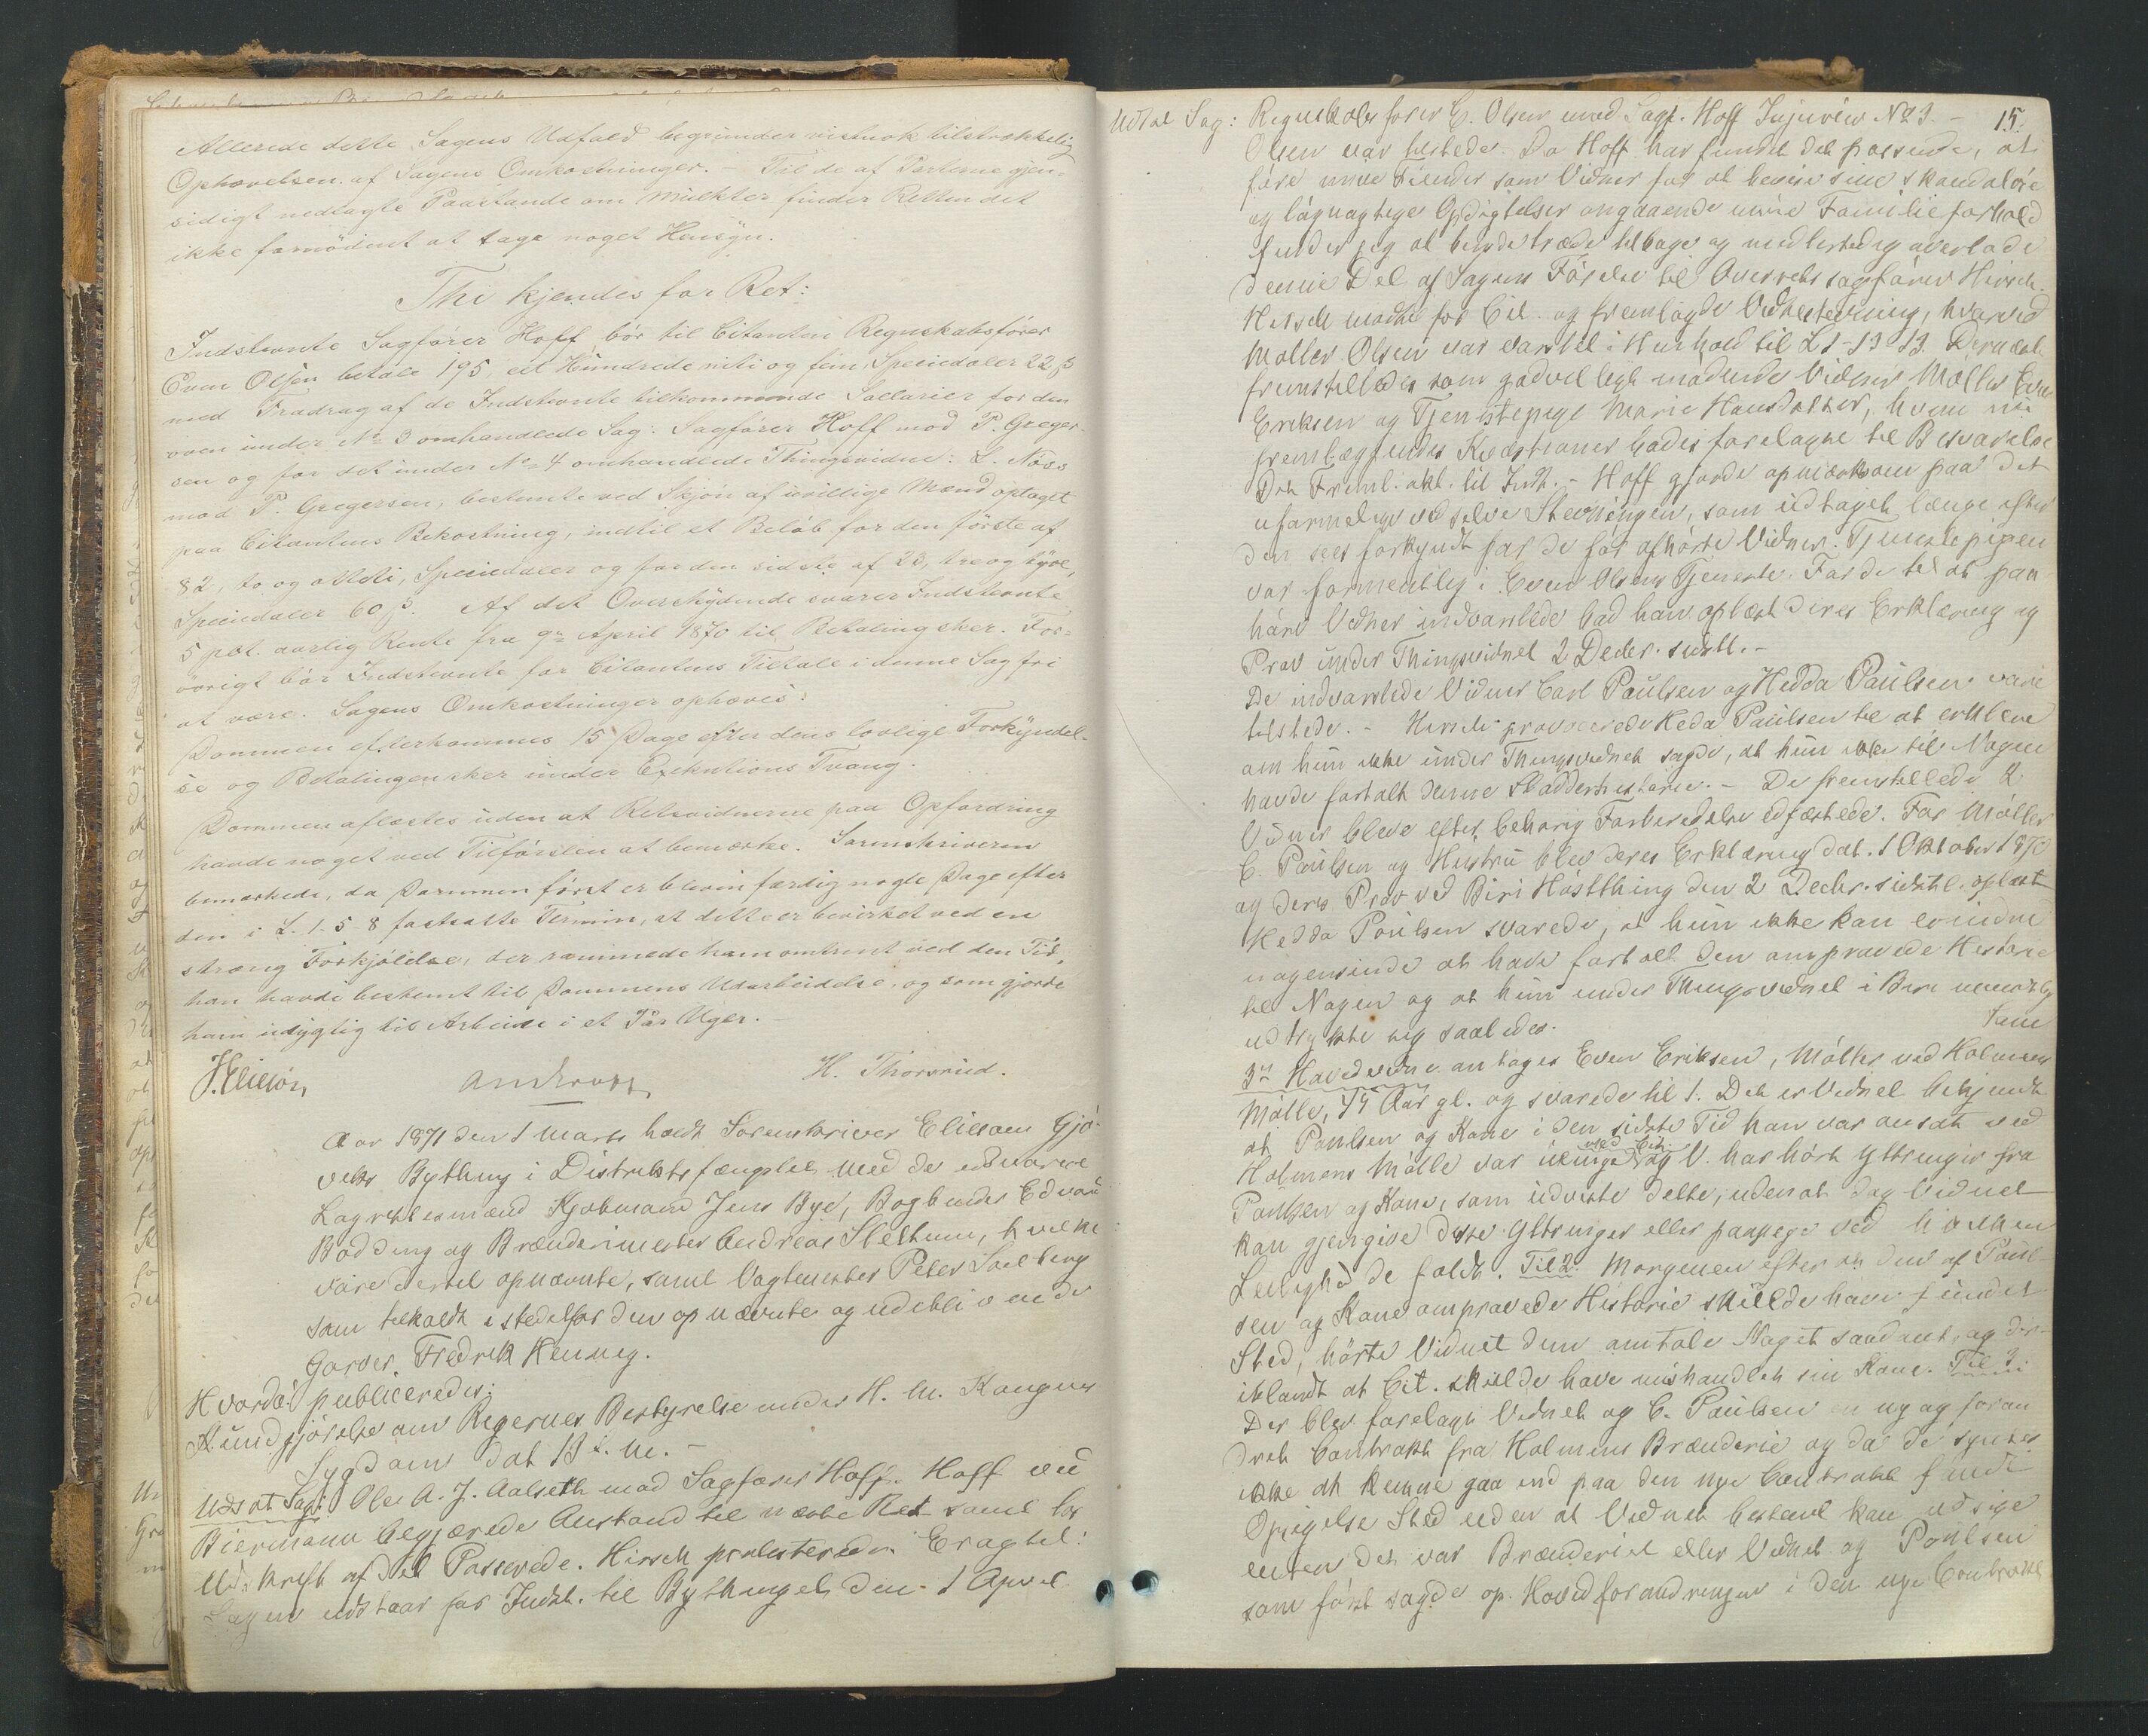 Allerede dette Sagens Udfald begrunder vistnok tilstrækkelig
Ophævelsen af Sagens Omkostninger. – Til de af Parterne gjen-
sidigt nedlagte Paastande om Mulkter finder Retten det
ikke fornödent at tage noget Hensyn.
Thi kjendes for Ret:
Indstevnte Sagförer Hoff bör til Citanten Regnskabsförer
Even Olsen betale 195, et Hundrede niti og fem, Speciedaler 22 ß
med Fradrag af de Indstevnte tilkommende Sallarier for den
oven under No 3 omhandlede Sag: Sagförer Hoff mod P. Greger-
sen og for det under No 4 omhandlede Thingsvidne: L. Næss
mod P. Gregersen, bestemte ved Skjön af uvillige Mænd optaget
paa Citantens Bekostning, indtil et Belöb for den förste af
82, to og otteti, Speciedaler og for den sidste af 23, tre og tyve,
Speciedaler 60 ß. Af det Overskydende svarer Indstevnte
5 pCt. aarlig Rente fra 9de April 1870 til Betaling sker. For-
övrigt bör Indstevnte for Citantens Tiltale i denne Sag fri
at være. Sagens Omkostninger ophæves.
Dommen efterkommes 15 Dage efter dens lovlige Forkyndel-
se og Betalingen sker under Exekutions Tvang.
Dommen aflæstes uden at Retsvidnerne paa Opfordring
havde noget ved Tilförslen at bemærke. Sorenskriveren
bemærkede, da Dommen först er bleven færdig nogle Dage efter
den i L. 1-5-8 fastsatte Termin, at dette er bevirket ved en
stræng Forkjölelse, der rammede ham omtrent ved den Tid,
han havde bestemt til Dommens Udarbeidelse, og som gjorde
ham udygtig til Arbeide i et Pår Uger. –
H. Thorsrud.
Aar 1871 den 1 Marts holdt Sorenskriver Elieson Gjö-
viks Bything i Distriktsfængslet med de edsvorne
Lagrettesmænd Kjöbmand Jens Bye, Bogbinder Edvard
Bödding og Brænderimester Andreas Slettum, hvilke
vare dertil opnævnte, samt Vagtmester Peter Solberg
som tilkaldt istedetfor den opnævnte og udeblivende
Garver Fredrik Kenneg.
Hvorda publiceredes:
Kundgjörelse om Regjerings Bestyrelse under H. M. Kongens
Sygdom dat 13 f. M. –
Udsat Sag: Ole A. J. Aalseth mod Sagförer Hoff. Hoff ved
Biermann begjærede Anstand til næste Ret samt los
Udskrift af det Passerede. Hirsch protesterede. Eragtet:
Sagen udstaar for Indst. til Bythinget den 1 April
15.
Udsat Sag: Regnskabsförer E. Olsen mod Sagf. Hoff Injurier No 3. –
Olsen var tilstede. Da Hoff har fundet det passende, at
före mine Fiender som Vidner for at bevise sine skandalöse
og lögnagtige Opdigtelser angaaende mine Familieforhold
finder jeg at burde træde tilbage og midlertidig overlade
denne Del af Sagens Förelse til Overretssagförer Hirsch.
Hirsch mödte for Cit. og fremlagde Vidnestevning, hvorved
Möller Olsen var varslet i Henhold til L 1-13-13. Dernæst
fremstilledes som godvilligt mödende Vidner Möller Even
Eriksen og Tjenestepige Marie Hansdatter, hvem nu
fremlæggendes Kvæstioner bades forelagte til Besvarelse
Det Freml. akt. til Indt. – Hoff gjorde opmærksom paa det
uformelige ved selve Stevningen, som udtaget længe efter
den sees forkyndt for de för afhörte Vidner. Tjenestepigen
var formentlig i Even Olsens Tjeneste. Förde til at paa-
höre Vidner indvarslede bad han oplæst deres Erklæring og
Prov under Thingsvidnet 2 Decbr. sidstl. –
De indvarslede Vidner Carl Paulsen og Hedda Paulsen vare
tilstede. – Hirsch provocerede Hedda Paulsen til at erklære
om hun ikke under Thingsvidnet sagde, at hun ikke til Nogen
havde fortalt denne Sladderhistorie. – De fremstillede 2
Vidner bleve efter behörig Forberedelse edfæstede. For Möller
C. Paulsen og Hustru blev deres Erklæring dat. 1 Oktober 1870
og deres Prov ved Biri Höstthing den 2 Decbr. sidstl. oplæst
Hedda Poulsen svarede, at hun ikke kan erindre
nogensinde at have fortalt den omprovede Historie
til Nogen og at hun under Thingsvidnet i Biri
udtrykte sig saaledes.
3die Hovedvidne antages Even Eriksen, Möller ved Holmens
Mölle, 45 Aar gl. og svarede til 1. Det er Vidnet bekjendt
at Paulsen og Kone i den sidste Tid han var ansat ved
Holmens Mölle var uenige ved Cit. og V. har hört Yttringer fra
Poulsen og Kone, som udviste dette, uden at dog Vidnet
kan gjengive disse Yttringer eller paapege ved hvilken
Leilighed de faldt. Til 2: Morgenen efter at den af Paul-
sen og Kone omprovede Historie skulde have fundet
Sted, hörte Vidnet dem omtale Noget saadant, og der-
iblandt at Cit. skulde have mishandlet sin Kone. Til 3:
Der blev forelagt Vidnet og C. Paulsen en ny og foran-
dret Contrakt fra Holmens Brænderie og da de syntes
ikke at kunne gaa ind paa den nye Contrakt fandt
Opsigelse Sted uden at Vidnet bestemt kan udsige
enten det var Brænderiet eller Vidnet og Poulsen
som först sagde op. Hovedforandringen i den nye Contrakt